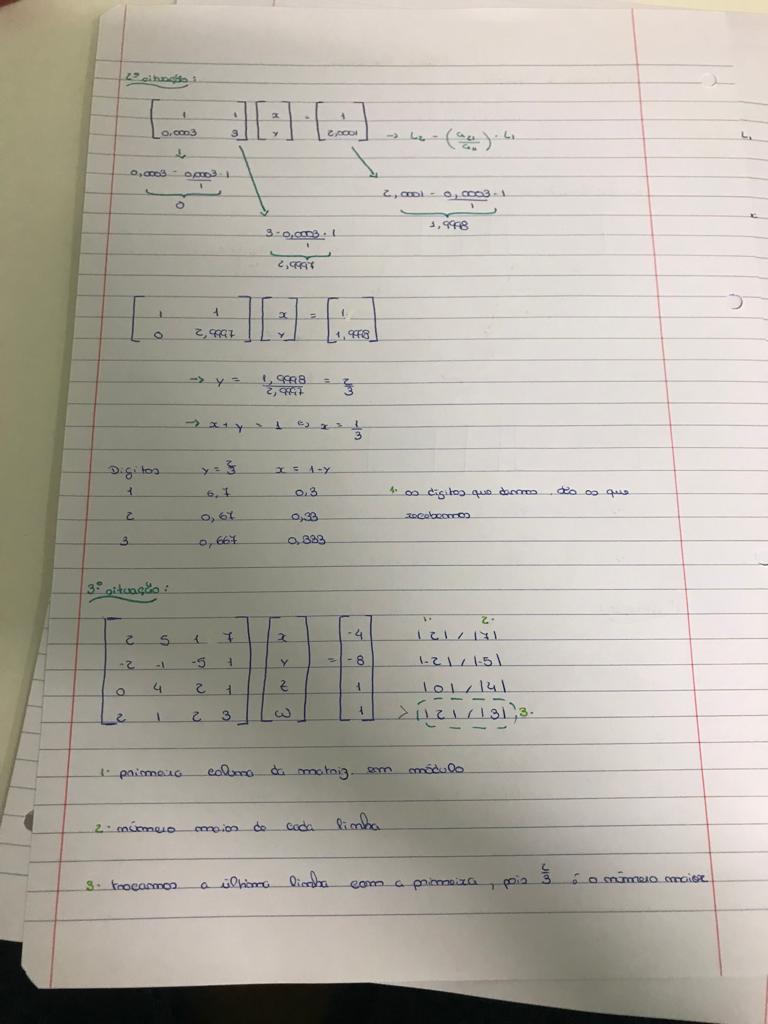 2ª situação:
[1 1; 0,0003 3] [x; y] = [1; 2,0001] → L2 - (a21/a11) · L1
0,0003 - 0,0003/1 · 1
0
2,0001 - 0,0003/1 · 1
1,9998
3 - 0,0003/1 · 1
2,9997
[1 1; 0 2,9997] [x; y] = [1; 1,9998]
→ y = 1,9998/2,9997 = 2/3
→ x + y = 1 ⇔ x = 1/3
Digitos y = 2/3 x = 1-y
1 0,7 0,3 1. os digitos que damos são os que
2 0,67 0,33 recebemos
3 0,667 0,333
3ª situação:
1. 2.
[2 5 1 7; -2 -1 -5 1; 0 4 2 1; 2 1 2 3] [x; y; z; w] = [-4; -8; 1; 1]
|2| / |7|
|-2| / |-5|
|0| / |4|
> |2| / |3| 3.
1. primeira coluna da matriz em módulo
2. número maior de cada linha
3. trocamos a última linha com a primeira, pois 2/3 é o número maior
L1
x